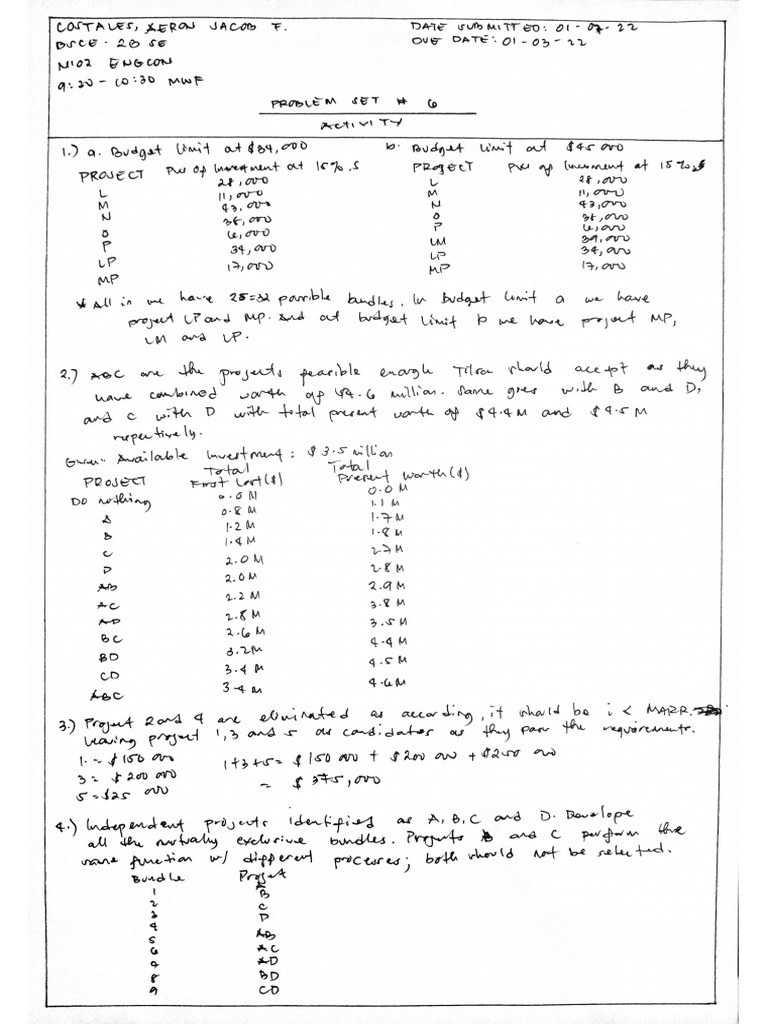 COSTALES, AERON JACOB F.
DATE SUBMITTED: 01-07-22
BSCE - 2B SE
DUE DATE: 01-03-22
N102 ENGCON
9:30 - 10:30 MWF
PROBLEM SET # 6
ACTIVITY
1.) a. Budget limit at $34,000
PROJECT PW of Investment at 15%, $
L 28,000
M 11,000
N 43,000
O 38,000
P 6,000
LP 34,000
MP 17,000
b. Budget limit at $45 000
PROJECT PW of Investment at 15%, $
L 28,000
M 11,000
N 43,000
O 38,000
P 6,000
LM 39,000
LP 34,000
MP 17,000
* All in we have 25=32 possible bundles. In budget limit a we have
project LP and MP. And at budget limit b we have project MP,
LM and LP.
2.) ABC are the projects feasible enough Tilsa should accept as they
have combined worth of $4.6 million. Same goes with B and D,
and C with D with total present worth of $4.4M and $4.5M
respectively.
Given: Available Investment: $3.5 million
PROJECT Total First Cost($) Total Present Worth($)
Do nothing 0.0M 0.0M
A 0.8M 1.1M
B 1.2M 1.7M
C 1.4M 1.8M
D 2.0M 2.7M
AB 2.0M 2.8M
AC 2.2M 2.9M
AD 2.8M 3.8M
BC 2.6M 3.5M
BD 3.2M 4.4M
CD 3.4M 4.5M
ABC 3.4M 4.6M
3.) Project 2 and 4 are eliminated as according, it should be i < MARR.
leaving project 1, 3 and 5 as candidates as they pass the requirements.
1. = $150 000
3 = $200 000
5 = $25 000
1+3+5 = $150 000 + $200 000 + $250 00
= $375,000
4.) Independent projects identified as A, B, C and D. Develope
all the mutually exclusive bundles. Projects B and C perform the
same function w/ different processes; both should not be selected.
Bundle Project
1 A
2 B
3 C
4 D
5 AB
6 AC
7 AD
8 BD
9 CD